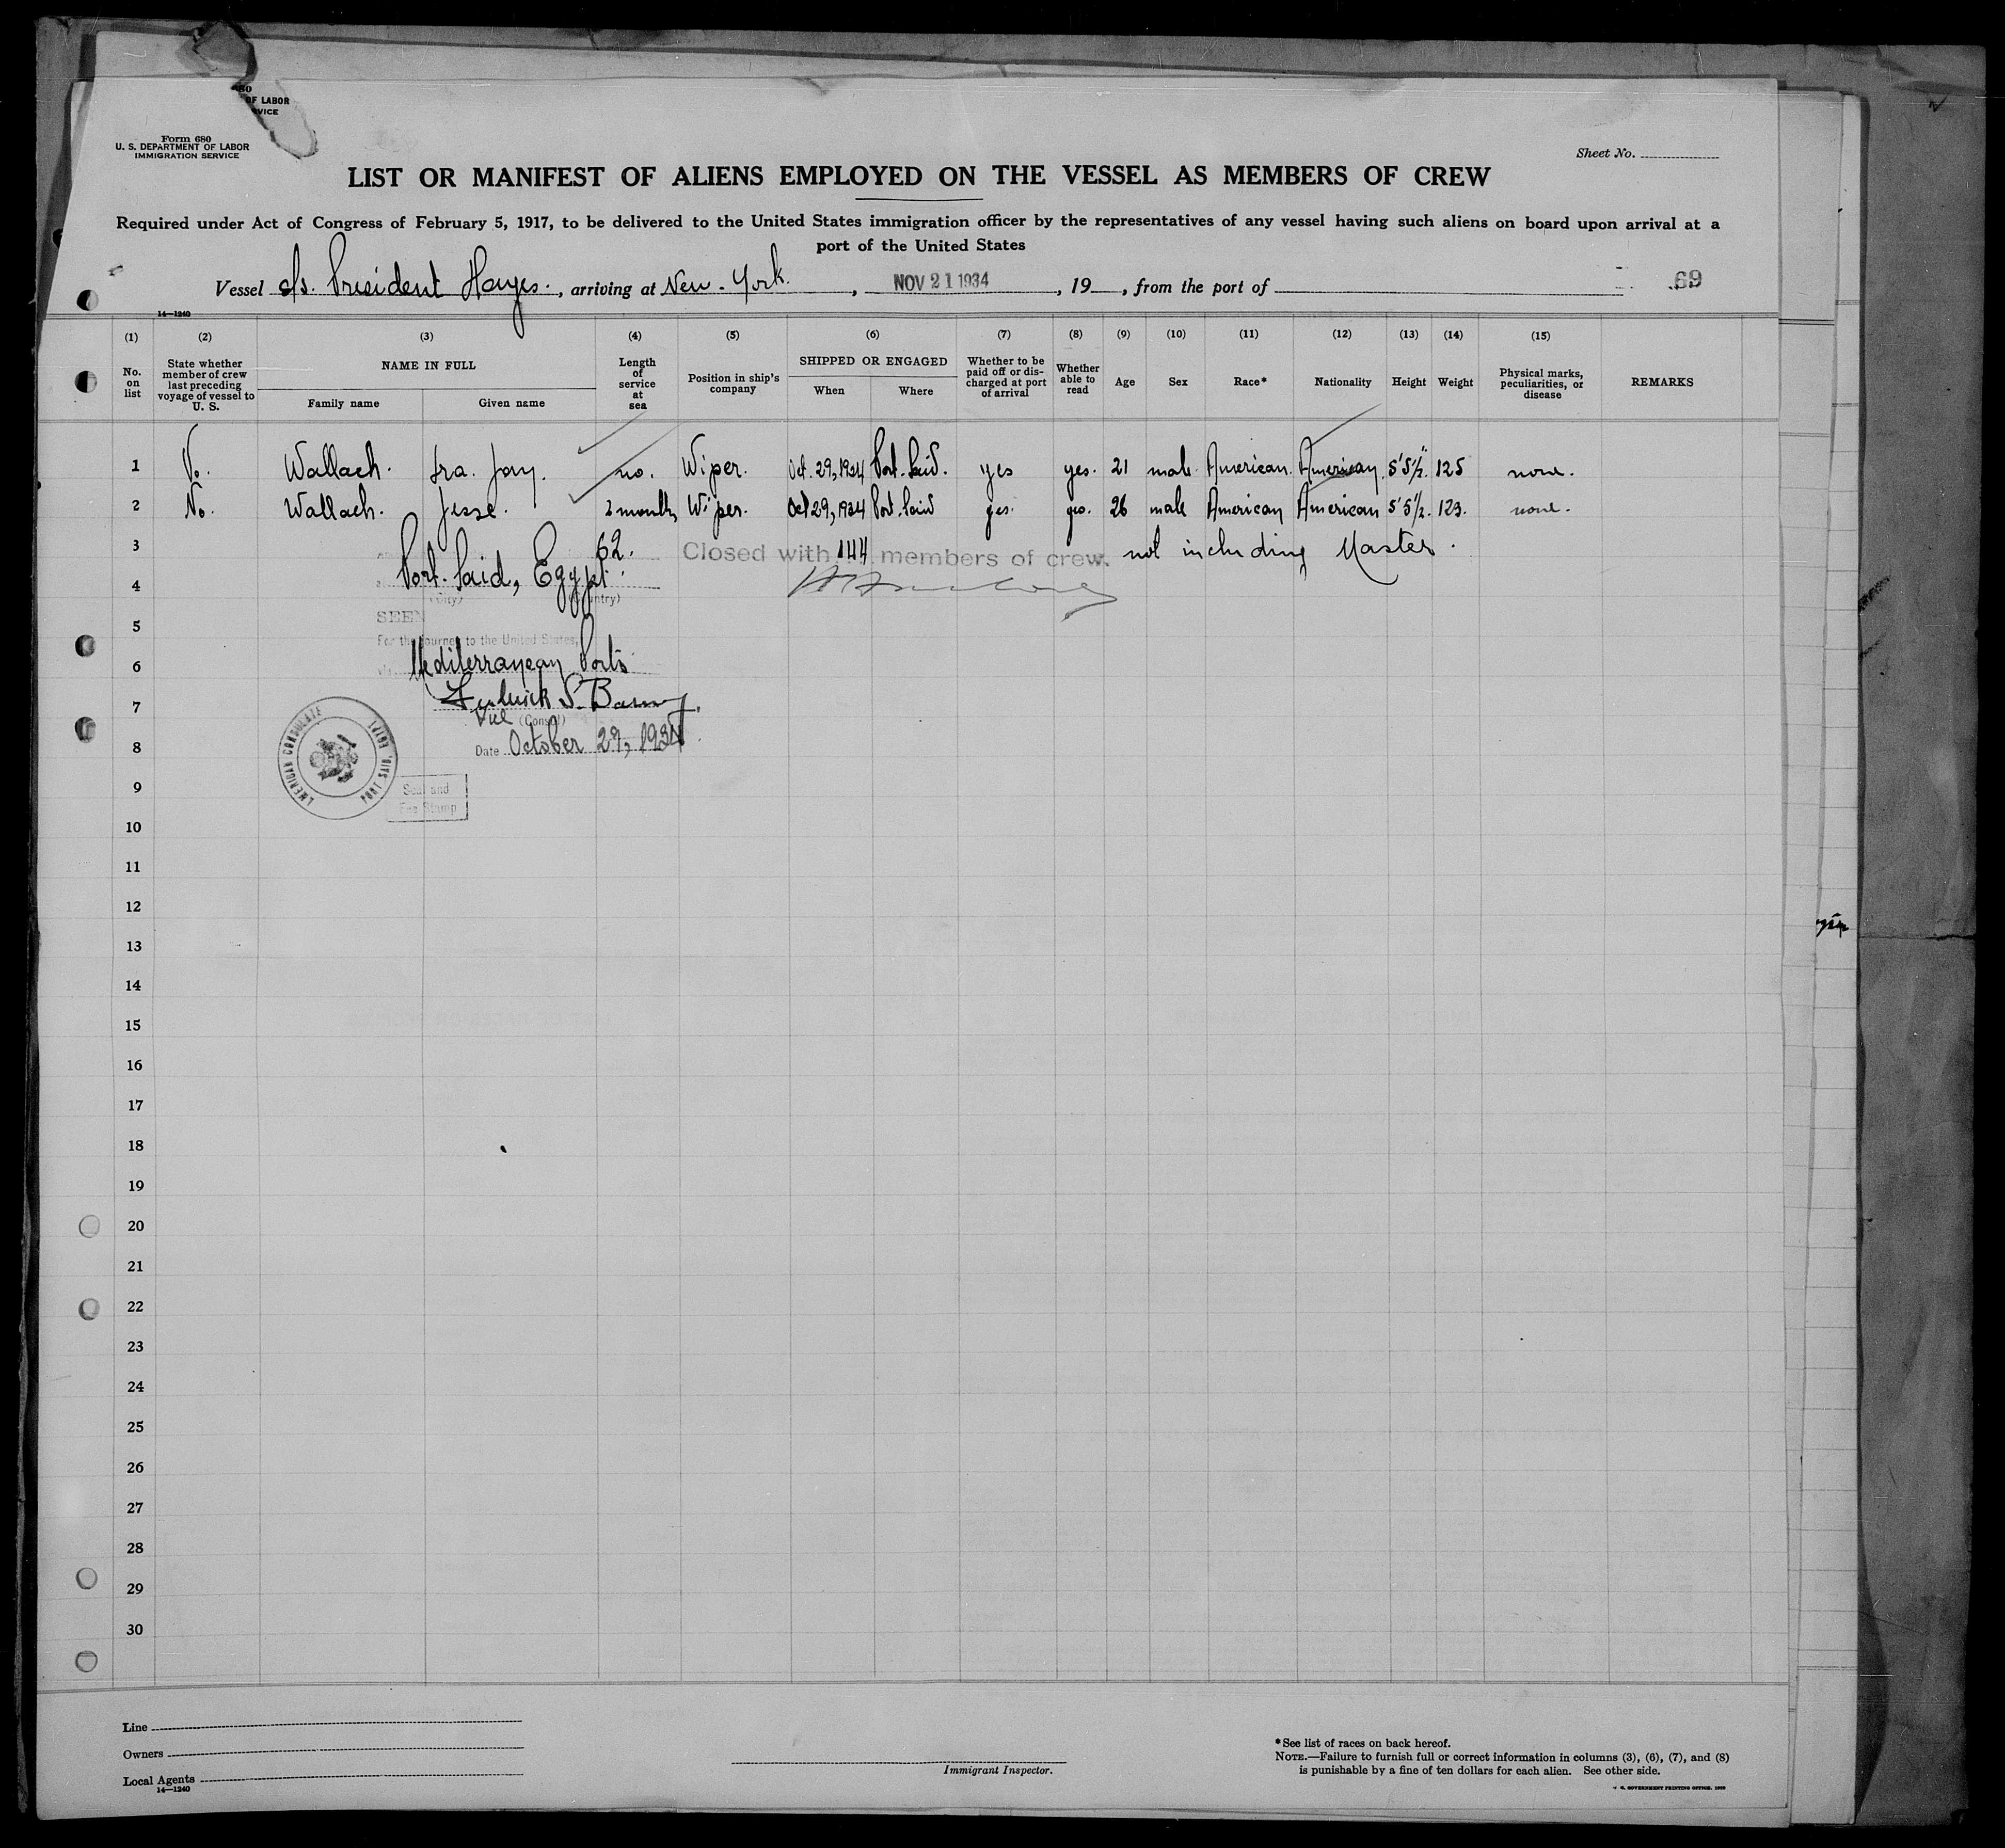 OF LABOR
Form 680
U. S. DEPARTMENT OF LABOR
IMMIGRATION SERVICE
Sheet No.
LIST OR MANIFEST OF ALIENS EMPLOYED ON THE VESSEL AS MEMBERS OF CREW
Required under Act of Congress of February 5, 1917, to be delivered to the United States immigration officer by the representatives of any vessel having such aliens on board upon arrival at a
port of the United States
Vessel s/s. President Hayes., arriving at New-York., NOV 21 1934, 19 , from the port of 69
14—1240
(1) (2) (3) (4) (5) (6) (7) (8) (9) (10) (11) (12) (13) (14) (15)
No. on list
State whether member of crew last preceding voyage of vessel to U. S.
NAME IN FULL
Family name Given name
Length of service at sea
Position in ship's company
SHIPPED OR ENGAGED
When Where
Whether to be paid off or discharged at port of arrival
Whether able to read
Age Sex Race* Nationality Height Weight
Physical marks, peculiarities, or disease
REMARKS
1 No. Wallach. Ira. Jay. no. Wiper. Oct. 29, 1934 Port. Said. yes yes. 21 male American. American. 5'5½" 125 none.
2 No. Wallach. Jesse. 2 months Wiper. Oct 29, 1934 Port. Said yes. yes. 26 male American American 5'5½. 123. none.
3 62. Closed with 144 members of crew. not including Master.
4 Port. Said, Egypt.
(City) (Country)
SEEN
5
For the journey to the United States,
6 Mediterranean Ports
7
Vice (Consul)
8 Date October 29, 1934
AMERICAN CONSULATE PORT SAID, EGYPT
9 Seal and
Fee Stamp
10
11
12
13
14
15
16
17
18
19
20
21
22
23
24
25
26
27
28
29
30
Line
Owners
Local Agents
14—1240
Immigrant Inspector.
*See list of races on back hereof.
NOTE.—Failure to furnish full or correct information in columns (3), (6), (7), and (8)
is punishable by a fine of ten dollars for each alien. See other side.